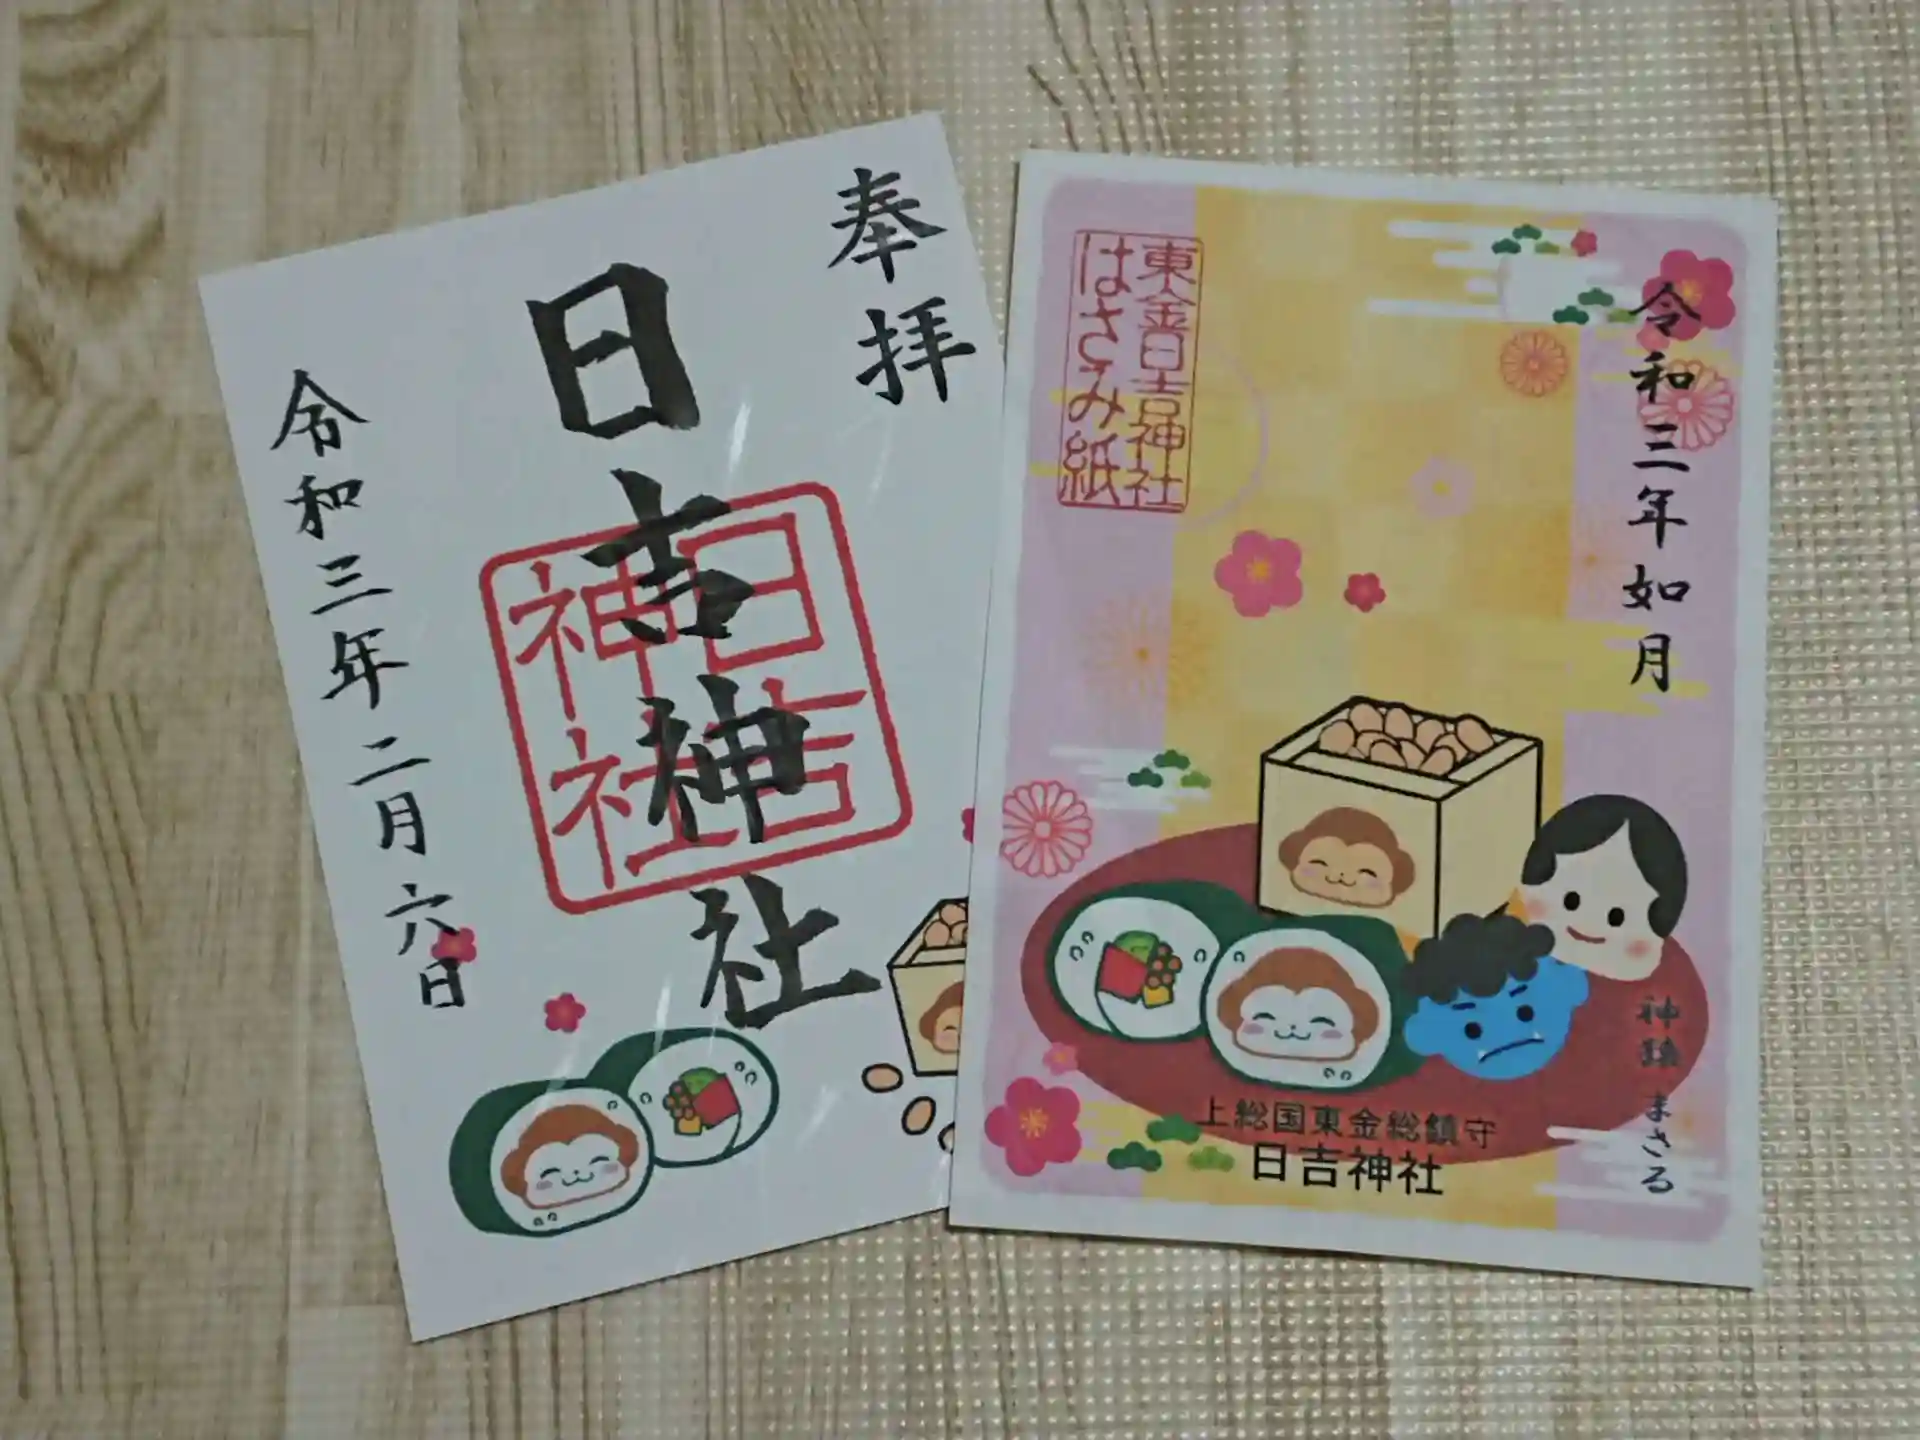 奉拝
日吉神社
日吉
神社
令和三年二月六日
東金日吉神社
はさみ紙
令和三年如月
神猿まさる
上総国東金総鎮守
日吉神社